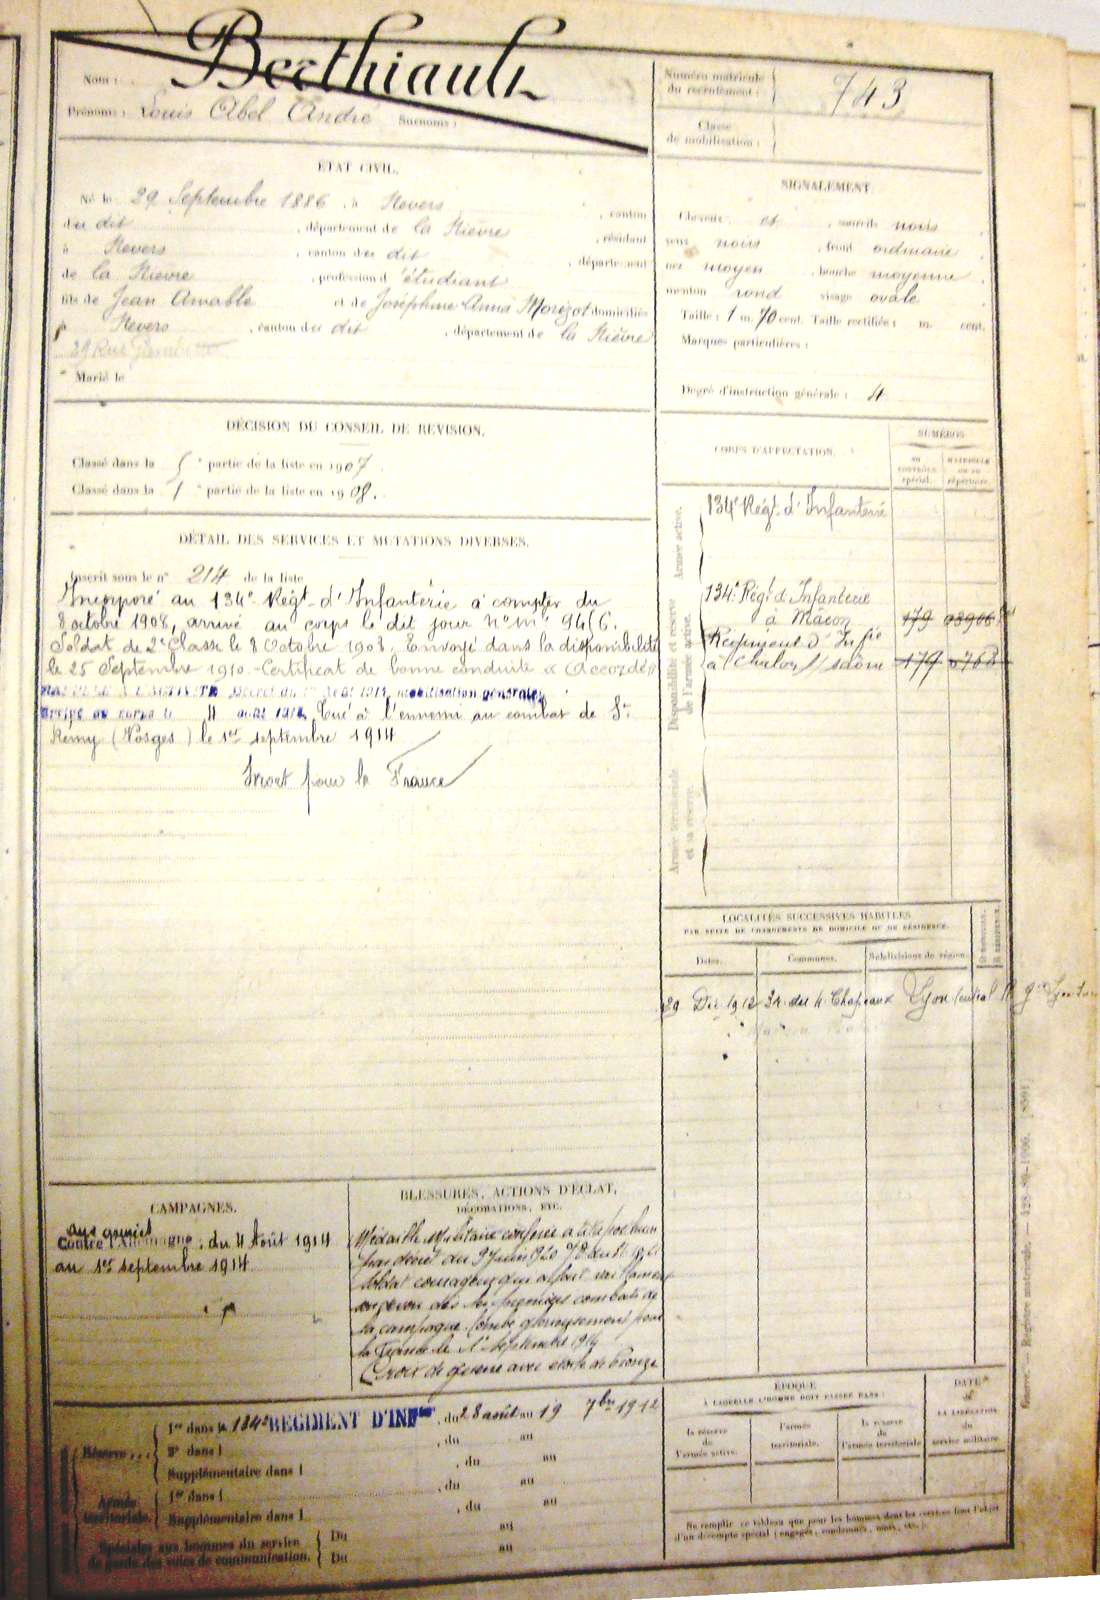 Nom : Berthiault
Prénoms : Louis Abel André Surnoms :
Numéro matricule du recrutement : 743
Classe de mobilisation :
ÉTAT CIVIL.
Né le 29 Septembre 1886, à Nevers, canton
du dit, département de la Nièvre, résidant
à Nevers, canton du dit, département
de la Nièvre, profession d'étudiant
fils de Jean Amable et de Joséphine Anna Morizot domiciliés
à Nevers, canton du dit, département de la Nièvre
29 Rue
Marié le
SIGNALEMENT.
Cheveux et, sourcils noirs
yeux noirs, front ordinaire
nez moyen, bouche moyenne
menton rond visage ovale
Taille : 1 m. 70 cent. Taille rectifiée : m. cent.
Marques particulières :
Degré d'instruction générale : 4
DÉCISION DU CONSEIL DE RÉVISION.
Classé dans la 5e partie de la liste en 1907
Classé dans la 1e partie de la liste en 1908.
DÉTAIL DES SERVICES ET MUTATIONS DIVERSES.
Inscrit sous le n° 214 de la liste
Incorporé au 134e Régt d'Infanterie à compter du
8 octobre 1908, arrivé au corps le dit jour n° mle 9416.
Soldat de 2e Classe le 8 Octobre 1908. Envoyé dans la disponibilité
le 25 Septembre 1910. Certificat de bonne conduite « Accordé »
RAPPELÉ À L'ACTIVITÉ Décret du 1er Août 1914, mobilisation générale
Arrivé au corps le 4 août 1914. Tué à l'ennemi au combat de St
Rémy (Vosges) le 1er septembre 1914
Mort pour la France
CORPS D'AFFECTATION.
NUMÉROS
AU CONTRÔLE spécial.
MATRICULE OU AU répertoire.
Armée active.
134e Régt d'Infanterie
Disponibilité et réserve de l'armée active.
134e Régt d'Infanterie
à Mâcon 179 08906
Régiment d'Infie
à Chalon s/ Saône 179 0768
Armée territoriale et sa réserve.
LOCALITÉS SUCCESSIVES HABITÉES
PAR SUITE DE CHANGEMENTS DE DOMICILE OU DE RÉSIDENCE.
Dates. Communes. Subdivisions de région.
29 Dec 1912 34 du 4 Chapeaux Lyon Central
CAMPAGNES.
aux armées
Contre l'Allemagne, du 4 Août 1914
au 1er septembre 1914
BLESSURES, ACTIONS D'ÉCLAT,
DÉCORATIONS, ETC.
Médaille Militaire conférée à titre posthume
par décret du 9 Juin 1920
Soldat courageux qui a fait vaillamment
son devoir dès les premiers combats de
la campagne. Tombé glorieusement pour
la France le 1er septembre 1914
Croix de guerre avec étoile de bronze
Réserve... 1re dans le 134e RÉGIMENT D'INFie, du 28 août au 19 7bre 1912
2e dans l , du au
Supplémentaire dans l , du au
Armée territoriale. 1re dans l , du au
Supplémentaire dans l , du au
Spéciales aux hommes du service de garde des voies de communication. Du au
Du au
ÉPOQUE
À LAQUELLE L'HOMME DOIT PASSER DANS :
la réserve de l'armée active.
l'armée territoriale.
la réserve de l'armée territoriale
DATE de LA LIBÉRATION du service militaire.
Ne remplir ce tableau que pour les hommes dont les services font l'objet
d'un décompte spécial (engagés, condamnés, omis, etc.).